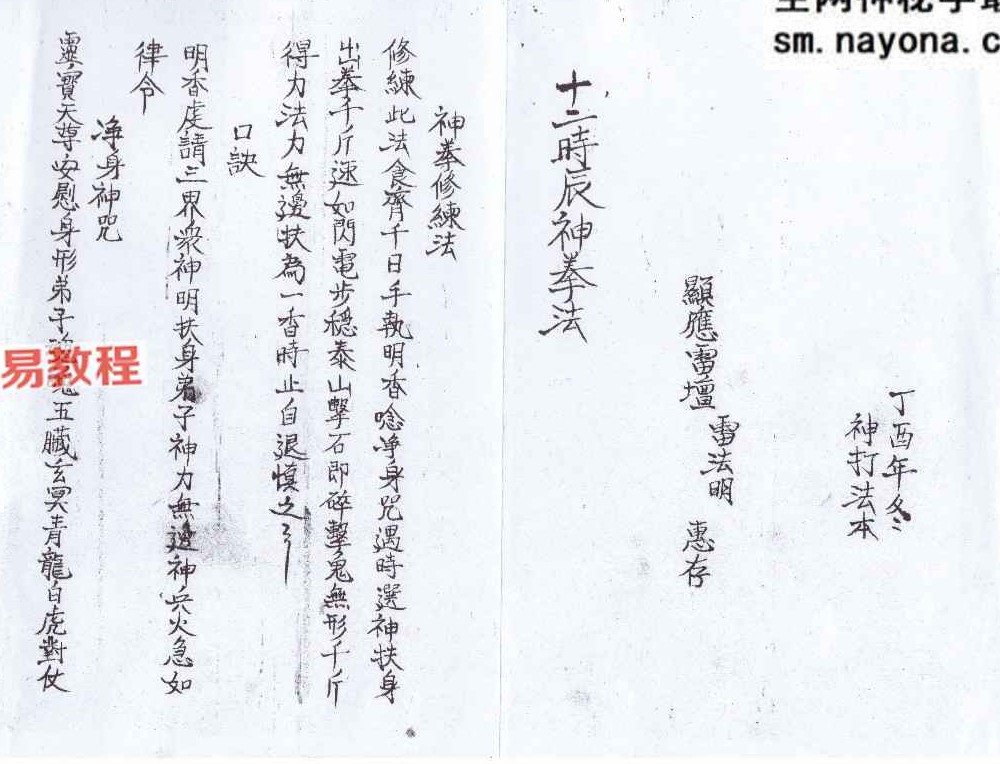 丁酉年冬
神打法本
顯應雷壇 雷法明 惠存
十二時辰神拳法
神拳修練法
修練此法食齊千日手執明香唸净身咒遇時選神扶身
出拳千斤速如閃電步穩泰山擊石即碎擊鬼無形千斤
得力法力無邊扶為一香時止自退慎之
口訣
明香虔請三界衆神明扶身弟子神力無邊神兵火急如
律令
净身神咒
靈寶天尊安慰身形弟子 五臟玄冥青龍白虎對仗
sm.nayona.c
易教程